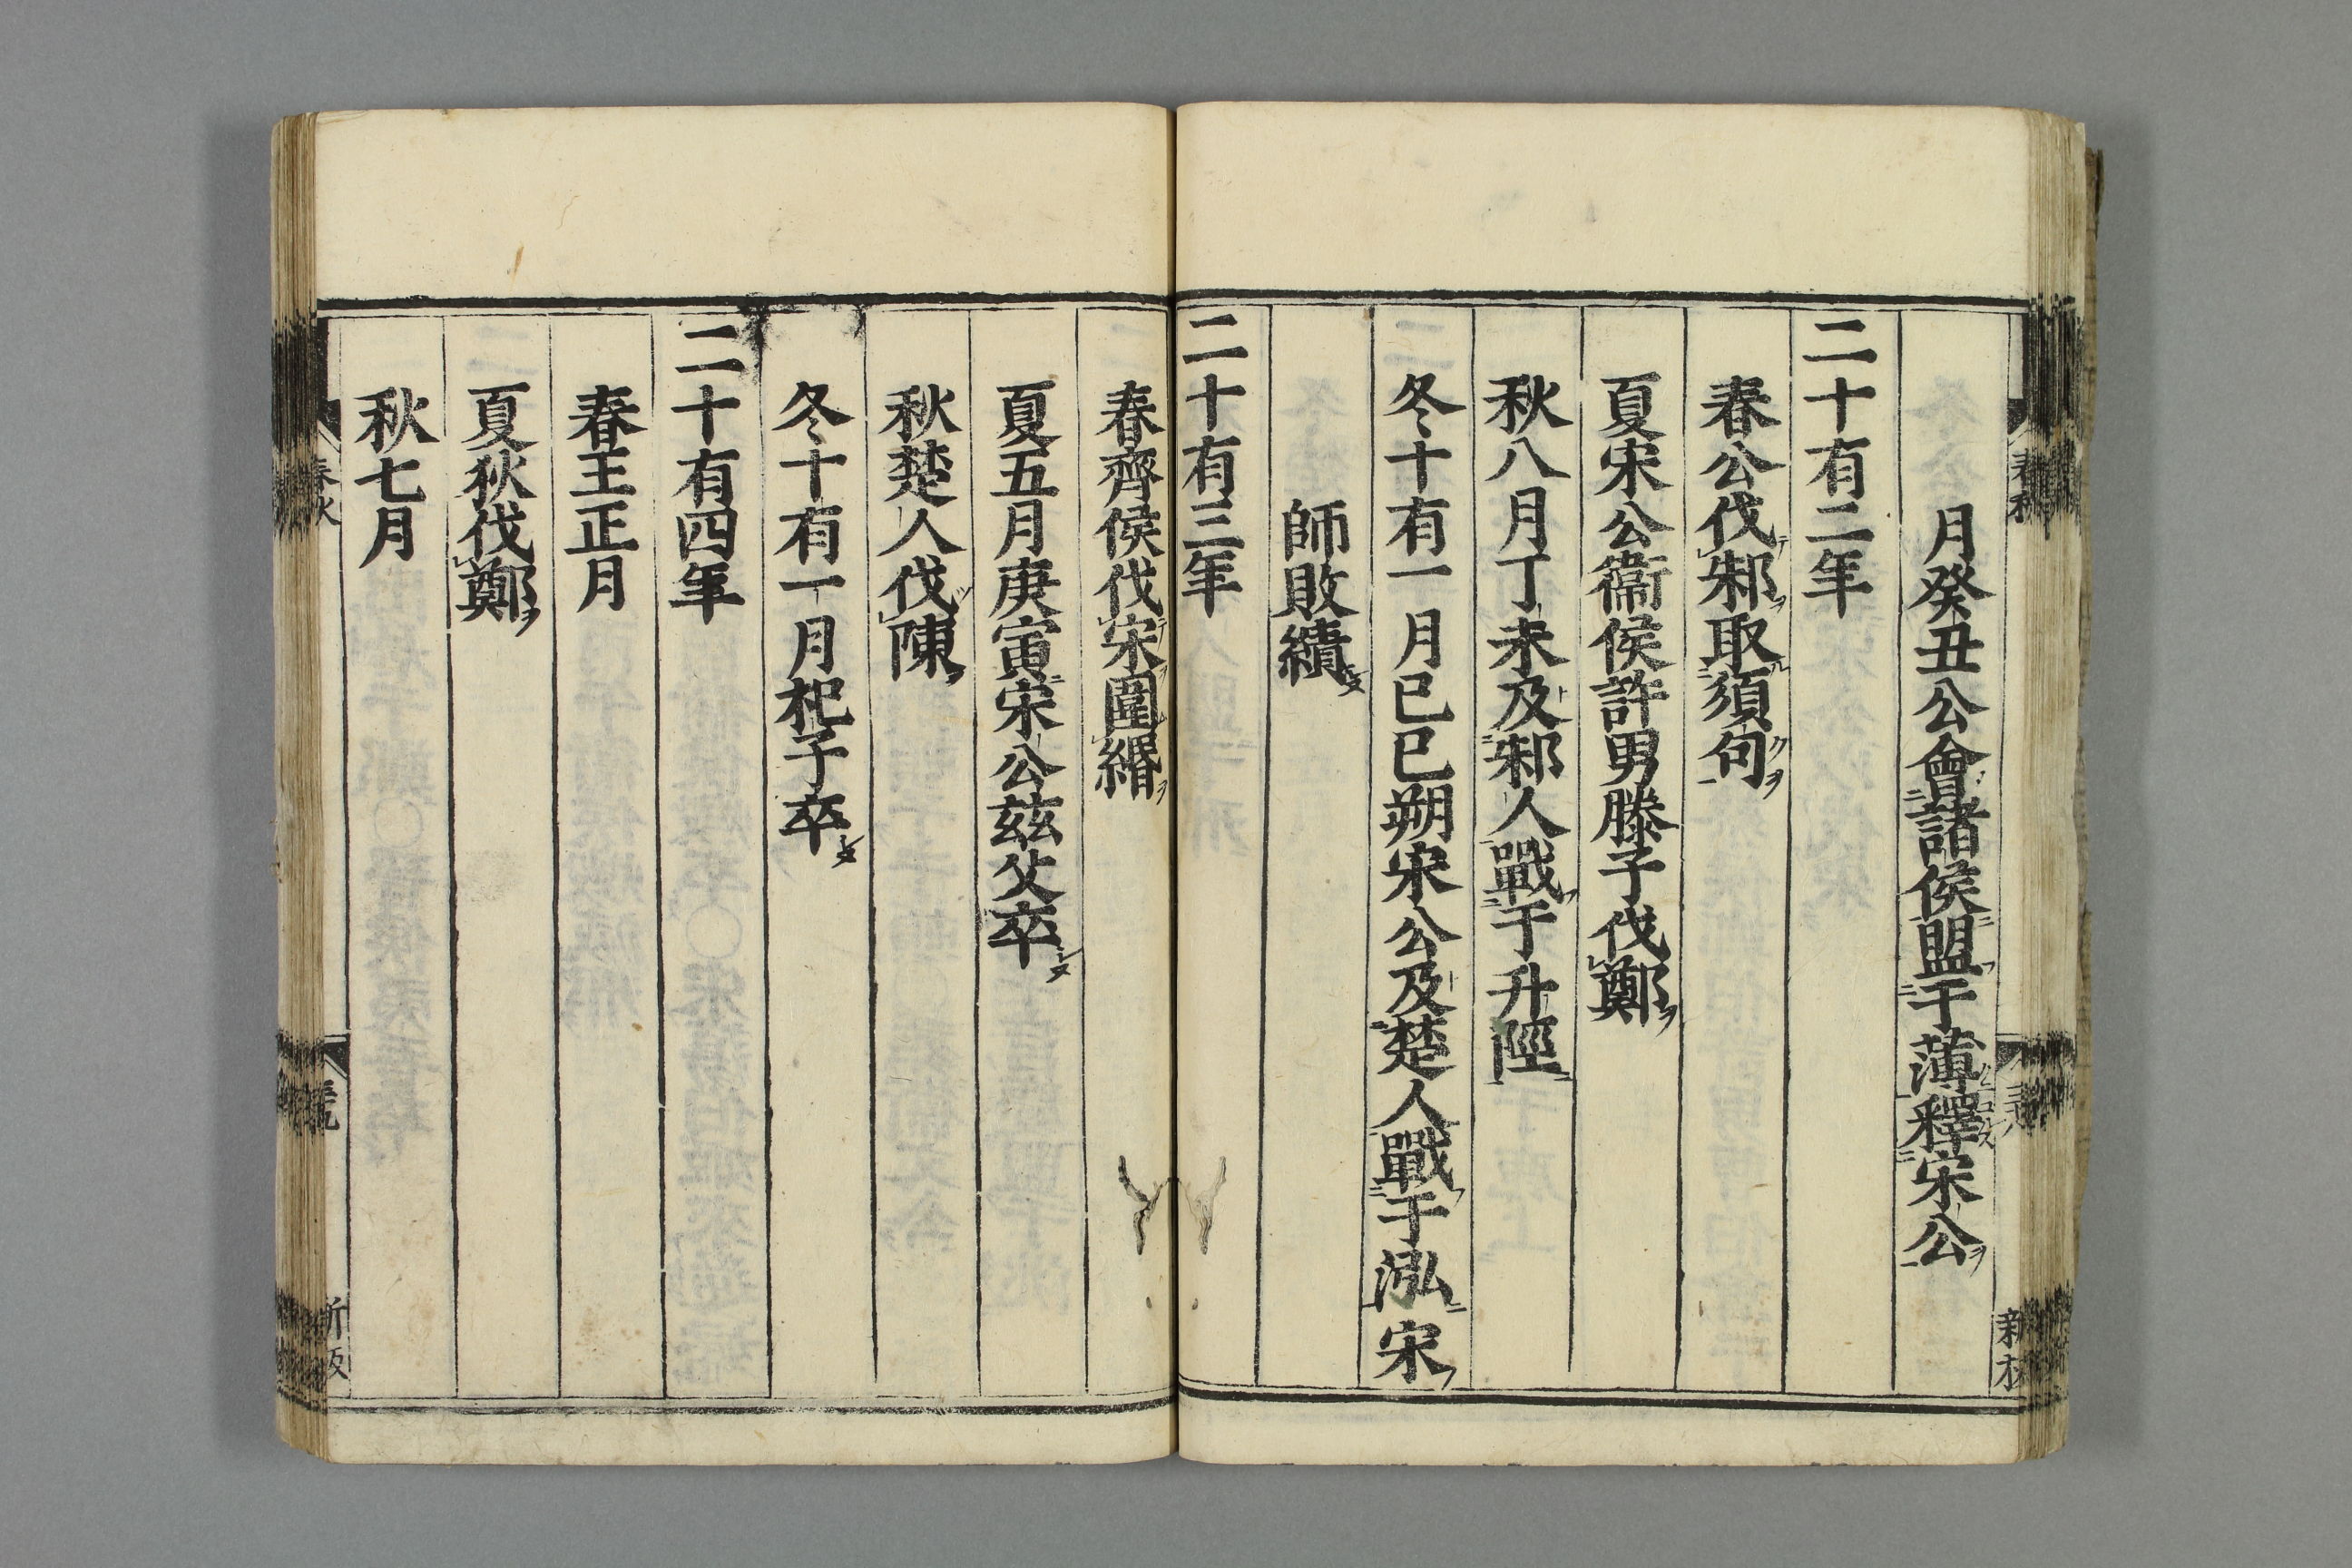 月癸丑公會諸侯盟于薄釋宋公
二十有二年
春公伐邾取須句
夏宋公衞侯許男滕子伐鄭
秋八月丁未及邾人戰于升陘
冬十有一月己巳朔宋公及楚人戰于泓宋
師敗績
二十有三年
春齊侯伐宋圍緡
夏五月庚寅宋公茲父卒
秋楚人伐陳
冬十有一月杞子卒
二十有四年
春王正月
夏狄伐鄭
秋七月